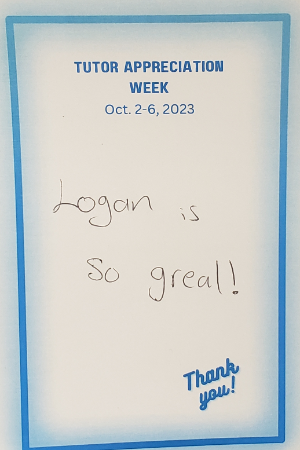 TUTOR APPRECIATION
WEEK
Oct. 2-6, 2023
Logan is
So great!
Thank
you!